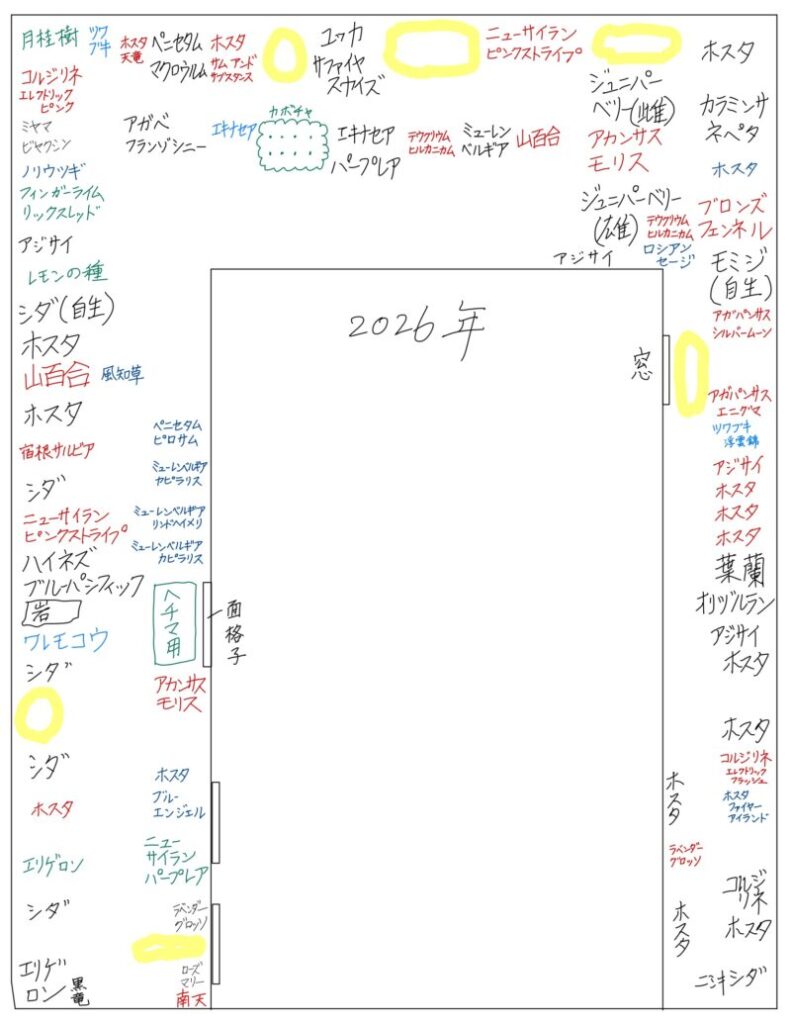 月桂樹
ツワ
ブキ
ホスタ
天竜
ペニセタム
マクロウルム
ホスタ
サム アンド
サブスタンス
ユッカ
サファイヤ
スカイズ
ニューサイラン
ピンクストライプ
ホスタ
コルジリネ
エレクトリック
ピンク
ジュニパー
ベリー(雌)
カラミンサ
ネペタ
ミヤマ
ビャクシン
アガベ
フランゾシニー
エキナセア
カボチャ
エキナセア
パープレア
テウクリウム
ヒルカニカム
ミューレン
ベルギア
山百合
アカンサス
モリス
ノリウツギ
ホスタ
フィンガーライム
リックスレッド
ジュニパーベリー
(雄)
テウクリウム
ヒルカニカム
ブロンズ
フェンネル
アジサイ
アジサイ
ロシアン
セージ
モミジ
(自生)
レモンの種
シダ(自生)
2026年
アガパンサス
シルバームーン
ホスタ
窓
山百合
風知草
アガパンサス
エニグマ
ホスタ
ツワブキ
浮雲錦
ペニセタム
ピロサム
宿根サルビア
アジサイ
シダ
ミューレンベルギア
カピラリス
ホスタ
ニューサイラン
ピンクストライプ
ミューレンベルギア
リンドハイメリ
ホスタ
ホスタ
ミューレンベルギア
カピラリス
ハイネズ
ブルーパシフィック
葉蘭
岩
ヘチマ用
面格子
オリヅルラン
ワレモコウ
アジサイ
シダ
ホスタ
アカンサス
モリス
ホスタ
シダ
ホスタ
ブルー
エンジェル
ホスタ
コルジリネ
エレクトリック
フラッシュ
ホスタ
ホスタ
ファイヤー
アイランド
エリゲロン
ニュー
サイラン
パープレア
ラベンダー
グロッソ
コルジ
リネ
シダ
ラベンダー
グロッソ
ホスタ
ホスタ
エリゲ
ロン
黒竜
ローズ
マリー
南天
ニシキシダ